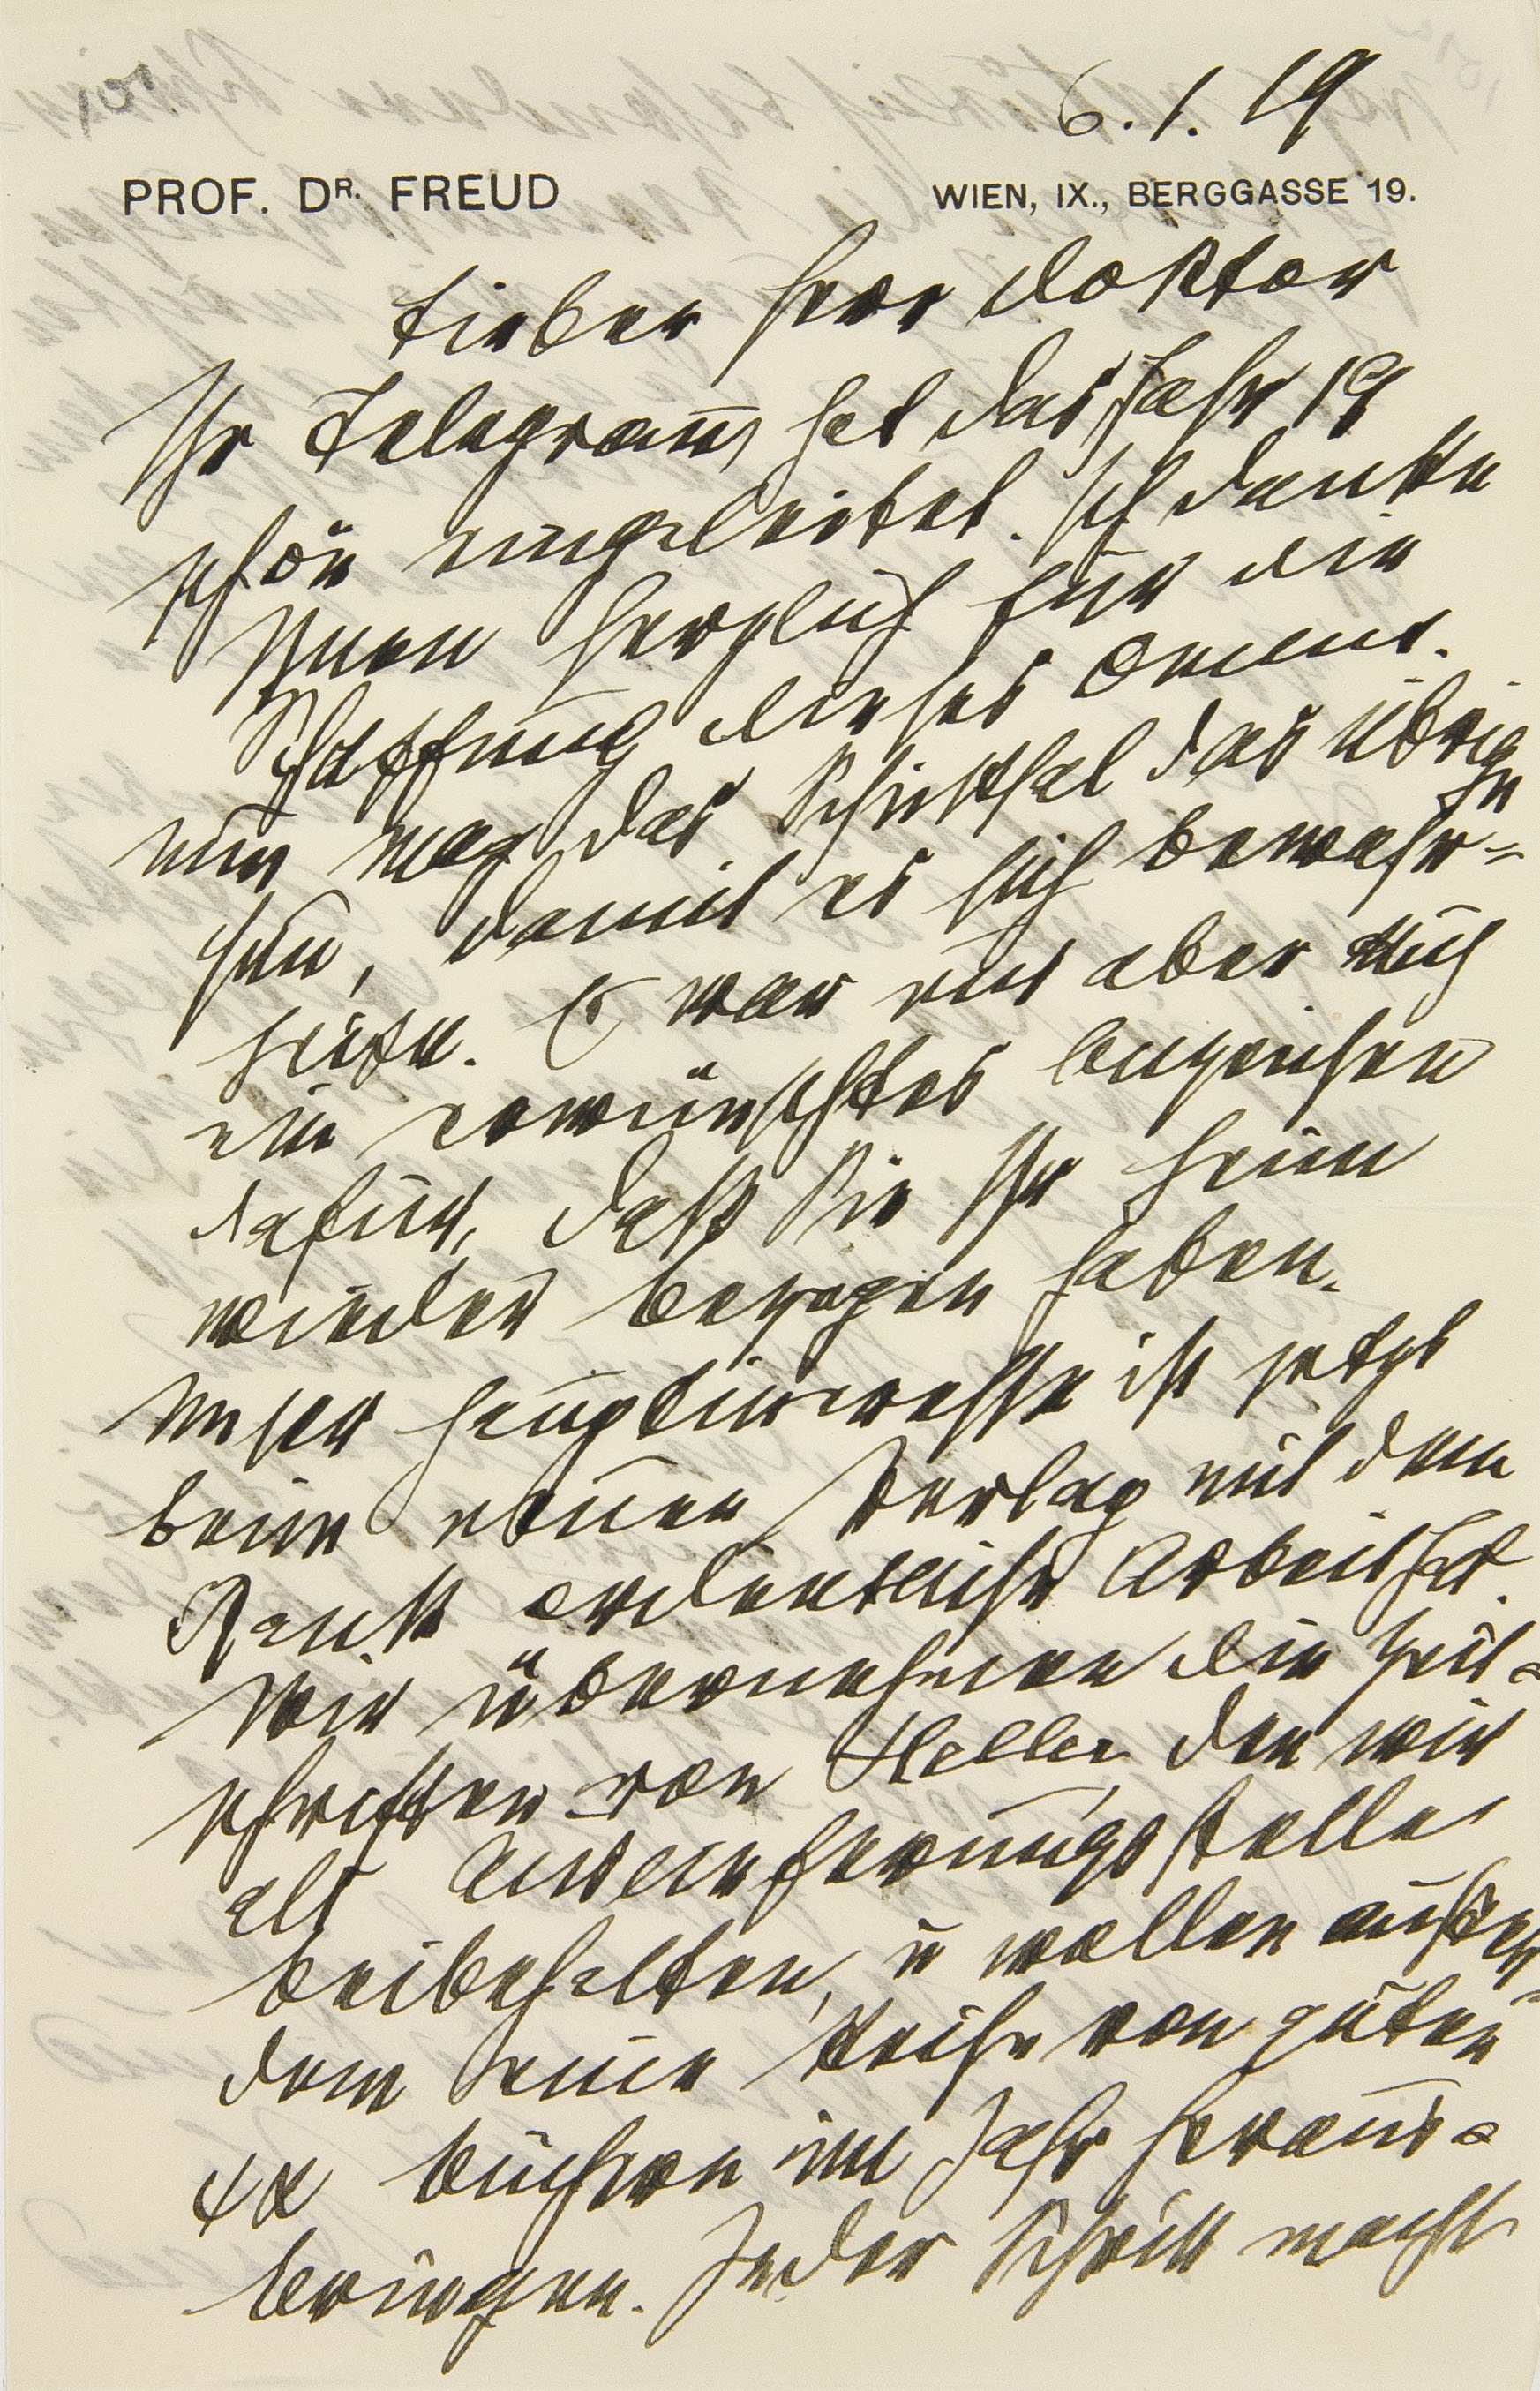 6. 1. 19
PROF. DR. FREUD WIEN, IX., BERGGASSE 19.
Lieber Herr Doktor
Ihr Telegram̅ hat das Jahr 19
schön eingeleitet. Ich danke
Ihnen herzlich für die
Schaffung dieses Omens.
nun mag das Schicksal das übrige
thun, damit es sich bewahr=
heite. Es war uns aber auch
ein erwünschtes Anzeichen
dafür, daß Sie Ihr Heim
wieder bezogen haben.
Unser Hauptinteresse ist jetzt
beim neuen Verlag mit dem
Rank ordentliche Arbeit hat.
Wir übernehmen die Zeit=
schriften von Heller den wir
als Auslieferungsstelle
beibehalten, u wollen außer=
dem eine Reihe von guten
ψα Büchern im Jahr heraus=
bringen. Jeder Schritt macht